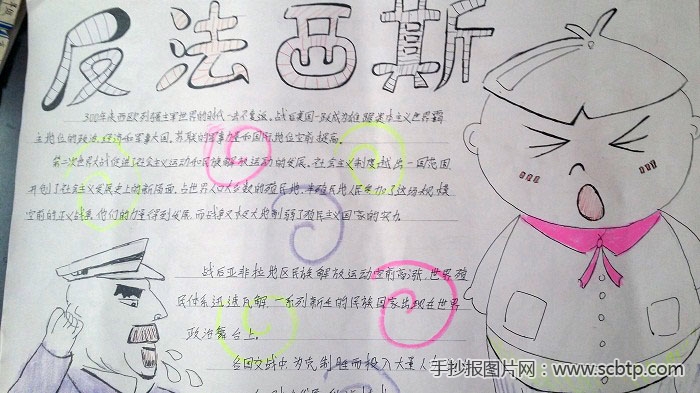 反法西斯
300年来西欧列强主宰世界的时代一去不复返。战后美国一跃成为雄踞资本主义世界霸
主地位的政治、经济和军事大国。苏联的军事力量和国际地位空前提高。
第二次世界大战促进了社会主义运动和民族解放运动的发展。社会主义制度越出一国范围
开创了社会主义发展史上的新局面。占世界人口大多数的殖民地、半殖民地人民参加了这场规模
空前的正义战争。他们的力量得到发展。而战争又极大地削弱了殖民主义国家的实力
战后亚非拉地区民族解放运动空前高涨，世界殖
民体系迅速瓦解。一系列新生的民族国家出现在世界
政治舞台上。
各国交战中为克制胜而投入大量人
手抄报图片网：www.scbtp.com